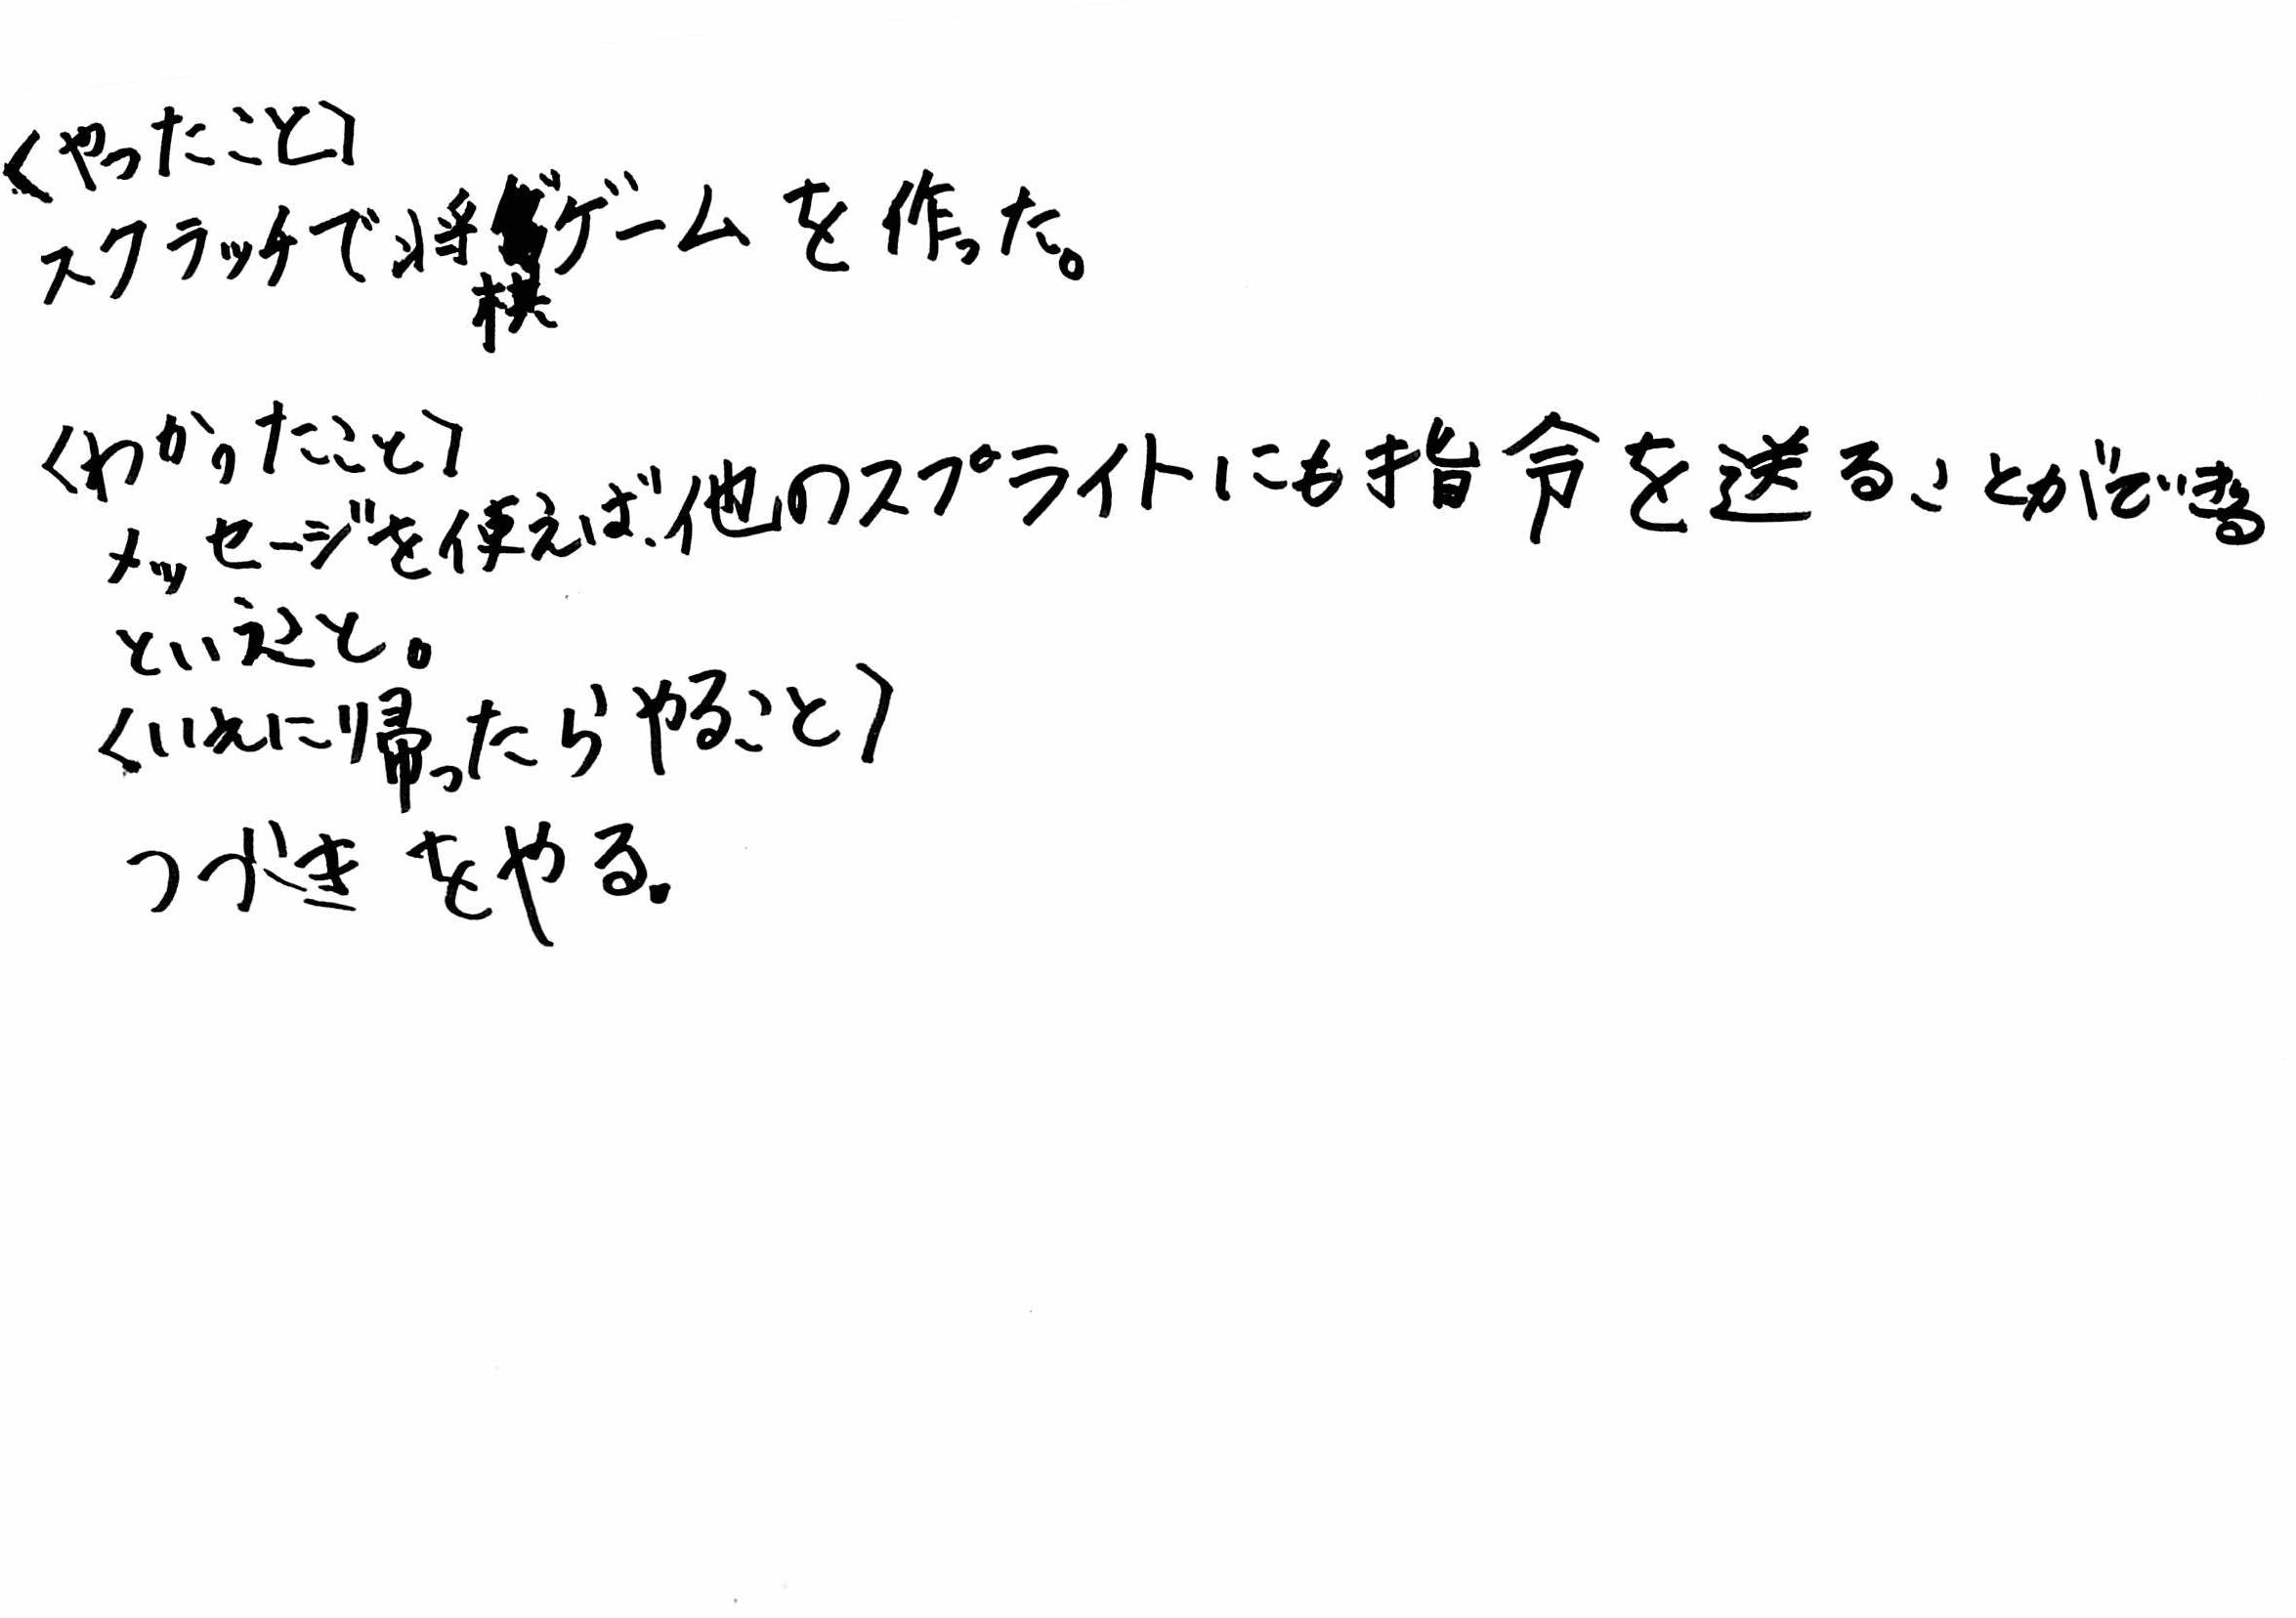 〈やったこと〉
スクラッチで将棋ゲームを作った。
〈わかったこと〉
メッセージを使えば、他のスプライトにも指令を送ることができる
ということ。
〈いえに帰ったらやること〉
つづきをやる。